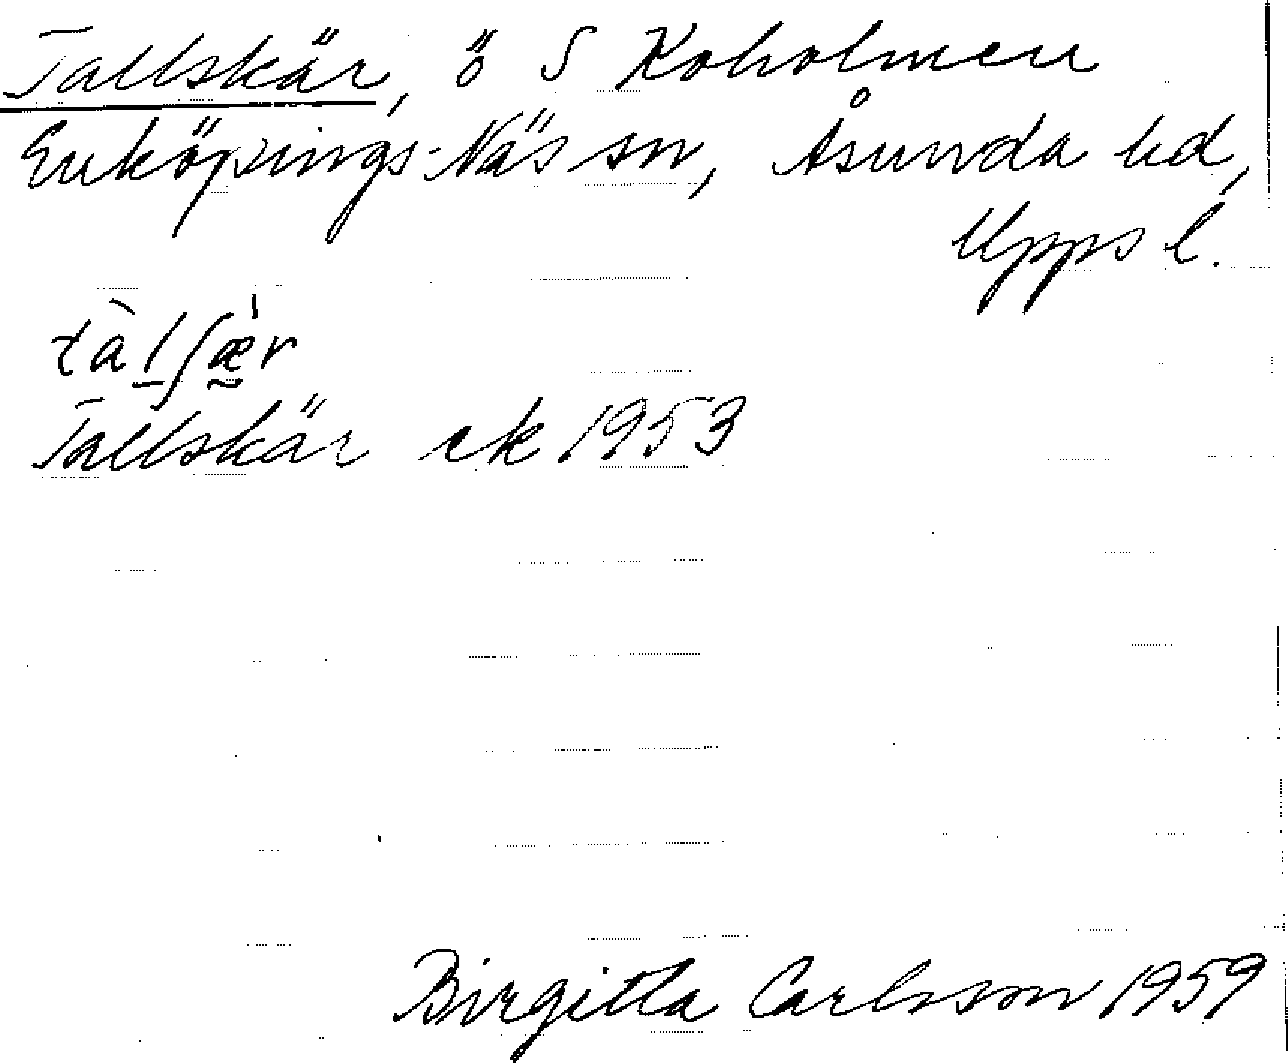 Tallskär, ö S Koholmen
Enköpings-Näs sn, Åsunda hd,
Upps l.
tàl̠ʃæ̰̀r
Tallskär ek 1953
Birgitta Carlsson 1959